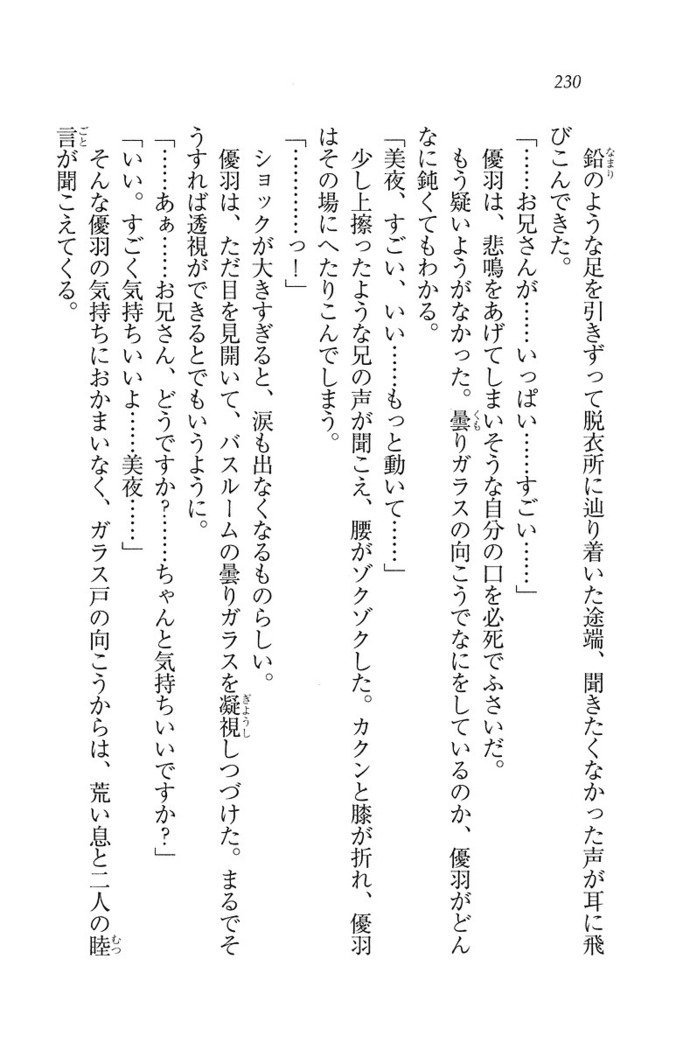 230
鉛のような足を引きずって脱衣所に辿り着いた途端、聞きたくなかった声が耳に飛
びこんできた。
「……お兄さんが……いっぱい……すごい……」
優羽は、悲鳴をあげてしまいそうな自分の口を必死でふさいだ。
もう疑いようがなかった。曇りガラスの向こうでなにをしているのか、優羽がどん
なに鈍くてもわかる。
「美夜、すごい、いい……もっと動いて……」
少し上擦ったような兄の声が聞こえ、腰がゾクゾクした。カクンと膝が折れ、優羽
はその場にへたりこんでしまう。
「…………っ！」
ショックが大きすぎると、涙も出なくなるものらしい。
優羽は、ただ目を見開いて、バスルームの曇りガラスを凝視しつづけた。まるでそ
うすれば透視ができるとでもいうように。
「……あぁ……お兄さん、どうですか？……ちゃんと気持ちいいですか？」
「いい。すごく気持ちいいよ……美夜……」
そんな優羽の気持ちにおかまいなく、ガラス戸の向こうからは、荒い息と二人の睦
言が聞こえてくる。